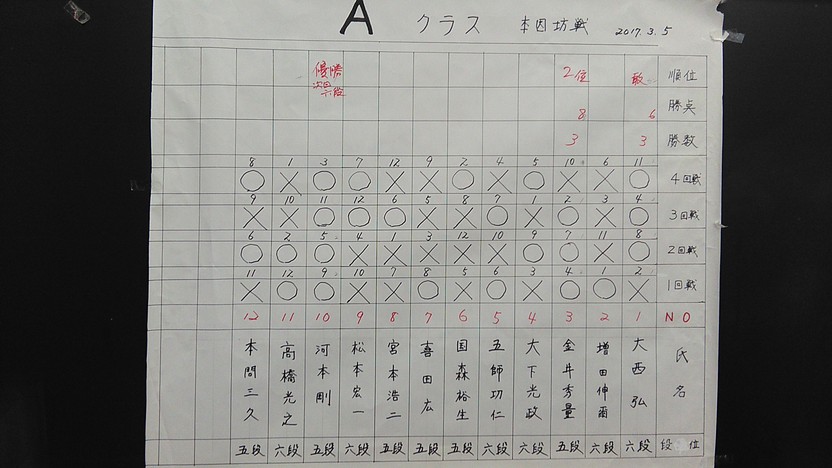 A クラス 本因坊戦 2017.3.5
優勝 2位 敢 順位
次回 六段 8 6 勝点
3 3 勝数
8 1 3 7 12 9 2 4 5 10 6 11
○ × ○ ○ × × ○ × ○ × × ○ 4回戦
9 10 11 12 6 5 8 7 1 2 3 4
× × ○ ○ ○ × × ○ × ○ × ○ 3回戦
6 2 5 4 1 3 12 10 9 7 11 8
○ ○ ○ × × × × × ○ ○ × ○ 2回戦
11 12 9 10 7 8 5 6 3 4 1 2
× ○ ○ × × ○ × ○ × ○ ○ × 1回戦
12 11 10 9 8 7 6 5 4 3 2 1 NO
本間三久 高橋光之 河本剛 松本宏一 宮本浩二 喜田広 国森裕生 五師功仁 大下光政 金井秀量 増田伸爾 大西弘 氏名
五段 六段 五段 六段 五段 五段 五段 六段 六段 五段 六段 六段 段位